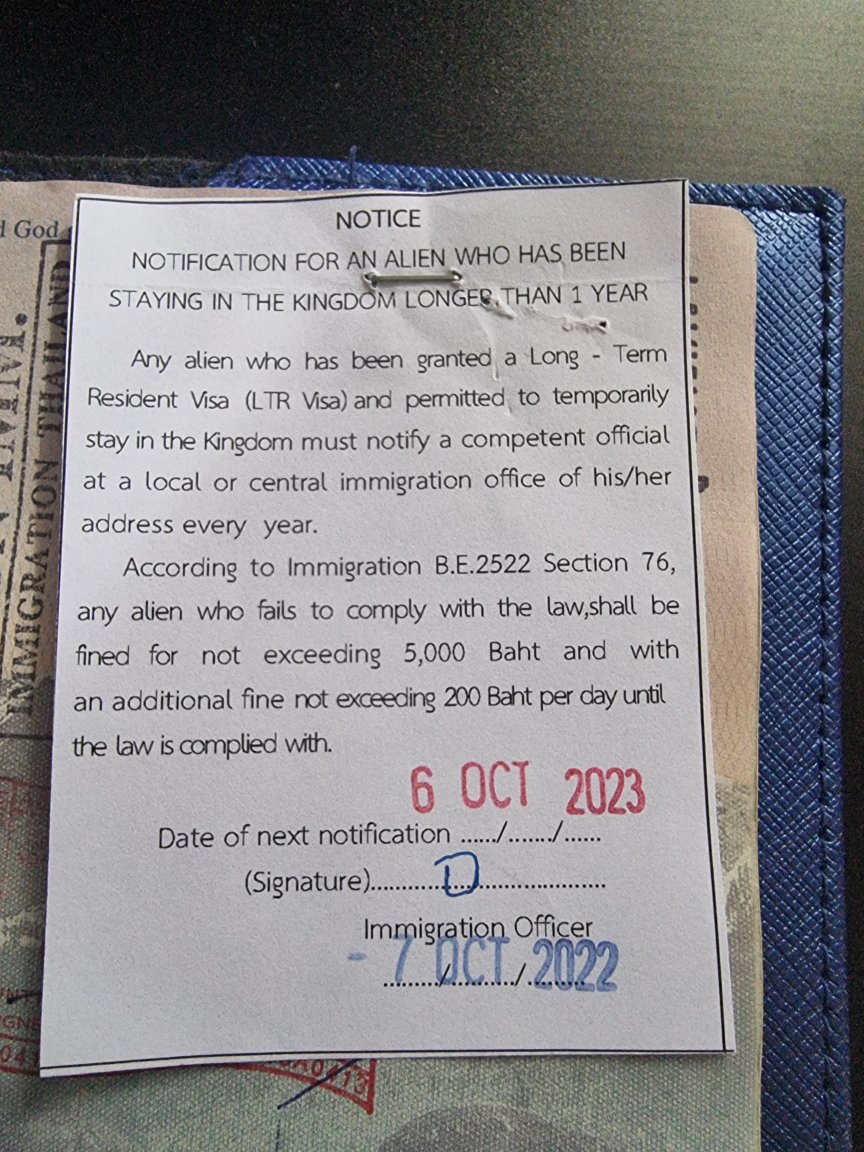 d God
IMMIGRATION THAILAND
NOTICE
NOTIFICATION FOR AN ALIEN WHO HAS BEEN
STAYING IN THE KINGDOM LONGER THAN 1 YEAR
Any alien who has been granted a Long - Term
Resident Visa (LTR Visa) and permitted to temporarily
stay in the Kingdom must notify a competent official
at a local or central immigration office of his/her
address every year.
According to Immigration B.E.2522 Section 76,
any alien who fails to comply with the law,shall be
fined for not exceeding 5,000 Baht and with
an additional fine not exceeding 200 Baht per day until
the law is complied with.
6 OCT 2023
Date of next notification ....../......./......
(Signature)..................................
Immigration Officer
- 7 OCT 2022